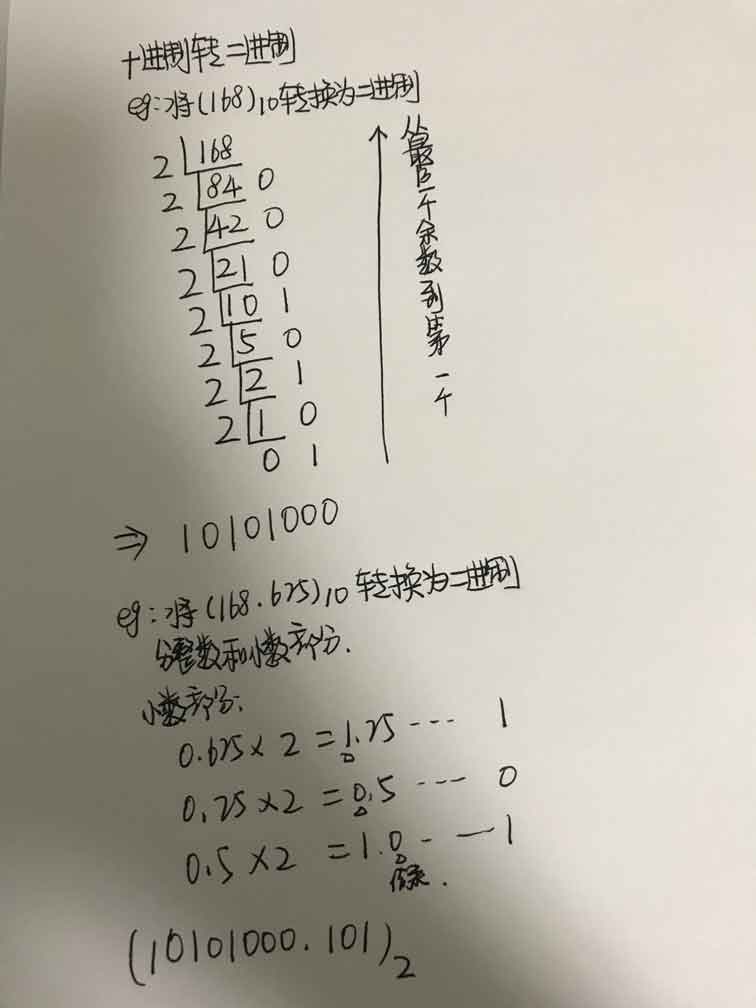 十进制转二进制
eg:将(168)10转换为二进制
2 168
2 84 0
2 42 0
2 21 0
2 10 1
2 5 0
2 2 1
2 1 0
0 1
从最后一个余数到第一个
⇒ 10101000
eg:将(168.625)10转换为二进制
分整数和小数部分.
小数部分:
0.625×2=1.25 --- 1
0.25×2=0.5 --- 0
0.5×2=1.0 - — 1
(10101000.101)2